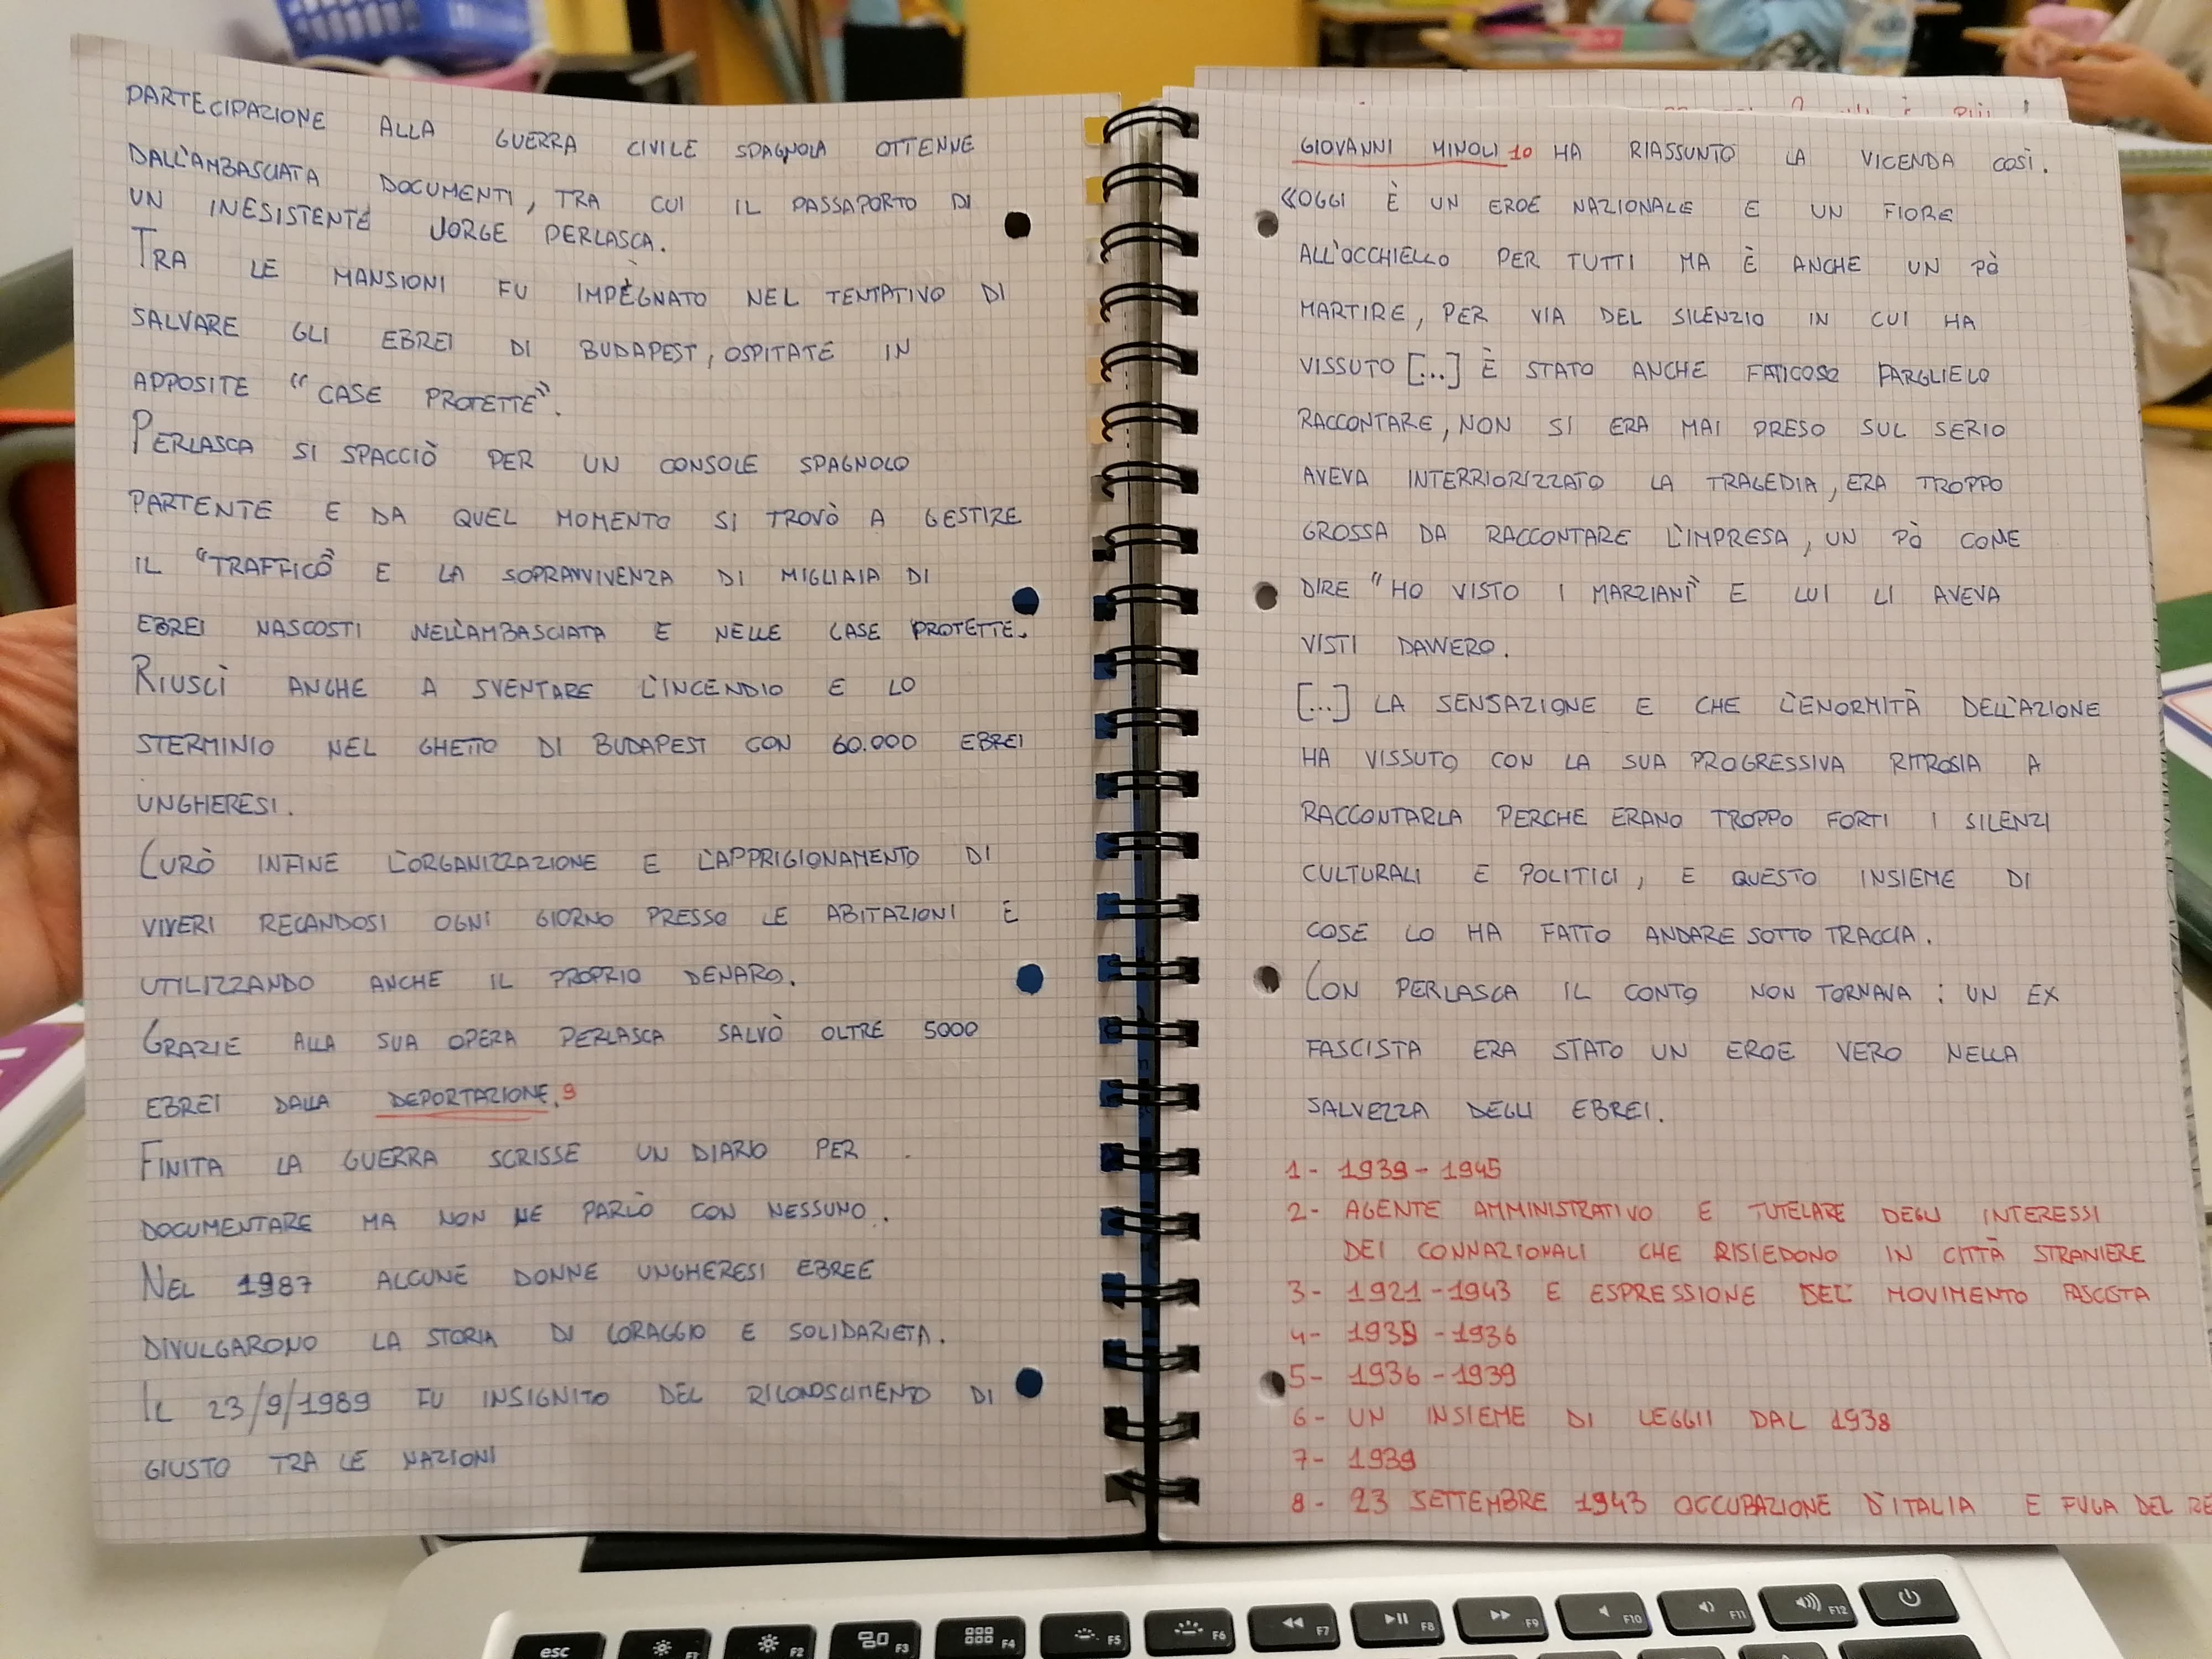 PARTECIPAZIONE ALLA GUERRA CIVILE SPAGNOLA OTTENNE
DALL'AMBASCIATA DOCUMENTI, TRA CUI IL PASSAPORTO DI
UN INESISTENTE JORGE PERLASCA.
TRA LE MANSIONI FU IMPEGNATO NEL TENTATIVO DI
SALVARE GLI EBREI DI BUDAPEST, OSPITATE IN
APPOSITE "CASE PROTETTE".
PERLASCA SI SPACCIÒ PER UN CONSOLE SPAGNOLO
PARTENTE E DA QUEL MOMENTO SI TROVÒ A GESTIRE
IL "TRAFFICO" E LA SOPRAVVIVENZA DI MIGLIAIA DI
EBREI NASCOSTI NELL'AMBASCIATA E NELLE CASE PROTETTE.
RIUSCÌ ANCHE A SVENTARE L'INCENDIO E LO
STERMINIO NEL GHETTO DI BUDAPEST CON 60.000 EBREI
UNGHERESI.
CURÒ INFINE L'ORGANIZZAZIONE E L'APPRIGIONAMENTO DI
VIVERI RECANDOSI OGNI GIORNO PRESSO LE ABITAZIONI E
UTILIZZANDO ANCHE IL PROPRIO DENARO.
GRAZIE ALLA SUA OPERA PERLASCA SALVÒ OLTRE 5000
EBREI DALLA DEPORTAZIONE. 9
FINITA LA GUERRA SCRISSE UN DIARIO PER
DOCUMENTARE MA NON NE PARLÒ CON NESSUNO.
NEL 1987 ALCUNE DONNE UNGHERESI EBREE
DIVULGARONO LA STORIA DI CORAGGIO E SOLIDARIETÀ.
IL 23/9/1989 FU INSIGNITO DEL RICONOSCIMENTO DI
GIUSTO TRA LE NAZIONI
GIOVANNI MINOLI 10 HA RIASSUNTO LA VICENDA COSÌ.
«OGGI È UN EROE NAZIONALE E UN FIORE
ALL'OCCHIELLO PER TUTTI MA È ANCHE UN PÒ
MARTIRE, PER VIA DEL SILENZIO IN CUI HA
VISSUTO [...] È STATO ANCHE FATICOSO FARGLIELO
RACCONTARE, NON SI ERA MAI PRESO SUL SERIO
AVEVA INTERRIORIZZATO LA TRAGEDIA, ERA TROPPO
GROSSA DA RACCONTARE L'IMPRESA, UN PÒ COME
DIRE "HO VISTO I MARZIANI" E LUI LI AVEVA
VISTI DAVVERO.
[...] LA SENSAZIONE E CHE L'ENORMITÀ DELL'AZIONE
HA VISSUTO CON LA SUA PROGRESSIVA RITROSIA A
RACCONTARLA PERCHE ERANO TROPPO FORTI I SILENZI
CULTURALI E POLITICI, E QUESTO INSIEME DI
COSE LO HA FATTO ANDARE SOTTO TRACCIA.
CON PERLASCA IL CONTO NON TORNAVA: UN EX
FASCISTA ERA STATO UN EROE VERO NELLA
SALVEZZA DEGLI EBREI.
1- 1939-1945
2- AGENTE AMMINISTRATIVO E TUTELARE DEGLI INTERESSI
DEI CONNAZIONALI CHE RISIEDONO IN CITTÀ STRANIERE
3- 1921-1943 E ESPRESSIONE DEL MOVIMENTO FASCISTA
4- 1935-1936
5- 1936-1939
6- UN INSIEME DI LEGGII DAL 1938
7- 1939
8- 23 SETTEMBRE 1943 OCCUPAZIONE D'ITALIA E FUGA DEL RE
esc F1 F2 F3 F4 F5 F6 F7 F8 F9 F10 F11 F12